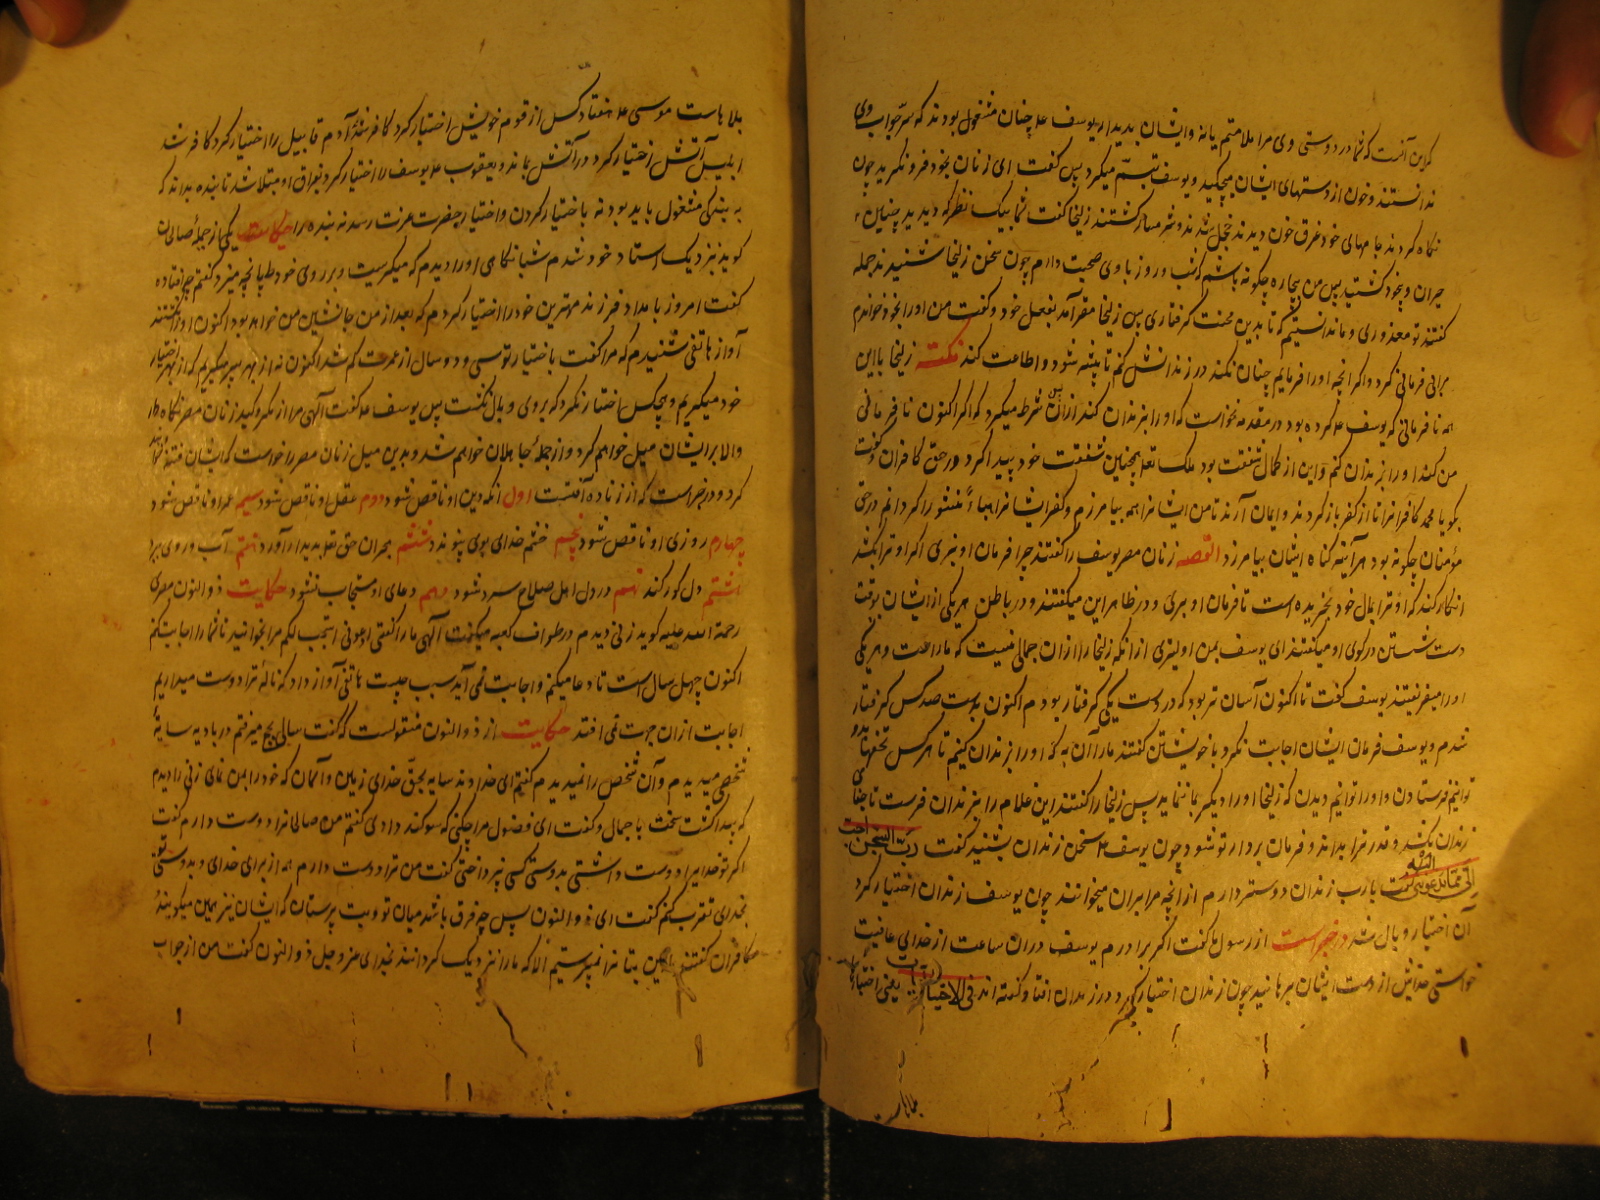 که این آنست که شما در دوستی وی مرا ملامت می‌یانه و ایشان بدیدار یوسف عم چنان مشغول بودند که سر جواب وی
ندانستند و خون از دستهای ایشان میچکید و یوسف تبسم میکرد پس گفت ای زنان بخود فرو نگرید چون
نگاه کردند جامهای خود غرق خون دیدند خجل شدند و شرمسار گشتند زلیخا گفت شما بیک نظر که دیدید چنین
حیران و بیخود گشتید پس من بیچاره چگونه باشم که شب و روز با وی صحبت دارم چون سخن زلیخا شنیدند جمله
گفتند تو معذوری و ما ندانستیم که تا بدین محنت گرفتاری پس زلیخا مقر آمد بفعل خود و گفت من او را بخود خواندم
مرا بی فرمانی کرد و اگر آنچه او را فرمایم چنان نکند در زندانش کنم تا پشیمان شود و اطاعت کند نکته زلیخا با این
همه نافرمانی که یوسف عم کرده بود در مقدمه نخواست که او را بزندان کند از آن شرط میکرد که اگر اکنون نافرمانی
من کند او را بزندان کنم و این از کمال شفقت بود ملک تعالی همچنین شفقت خود پیدا کرد در حق کافران گفت
بگو یا محمد کافرانرا تا از کفر باز گردند و ایمان آرند تا من ایشانرا همه بیامرزم و کفر ایشانرا هباءً منثورا گردانم در حق
مؤمنان چگونه بود هر آینه گناه ایشان بیامرزد القصه زنان مصر یوسف را گفتند چرا فرمان او نبری اگر او ترا بکشد
انکار کند که او ترا بمال خود بخریده است تا فرمان او بری و در ظاهر این میگفتند و در باطن هر یکی از ایشان بوقت
دست شستن در گوی او میگفتند ای یوسف بمن اولیتری از آنکه زلیخا را از آن جمالی نیست که ماراست و هر یکی
او را میفریفتند یوسف گفت تا اکنون آسان تر بود که در دست یکی گرفتار بودم اکنون بدست صد کس گرفتار
شدم و یوسف فرمان ایشان اجابت نکرد با خویشتن گفتند ما را آن به که او را بزندان کنیم تا هر کس تحفها بدو
توانیم فرستادن و او را توانیم دیدن که زلیخا او را دیگر بما ننماید پس زلیخا را گفتند این غلام را بزندان فرست تا جفای
زندان بکشد و قدر ترا بداند و فرمان بردار تو شود چون یوسف عم سخن زندان بشنید گفت رب السجن احب
الی مما یدعوننی الیه گفت یا رب زندان دوستر دارم از آنچه مرا بران میخوانند چون یوسف زندان اختیار کرد
آن اختیار وبال شد در خبر است از رسول عم گفت اگر برادرم یوسف در آن ساعت از خدای عافیت
خواستی خدایش از دست ایشان برهانیدی چون زندان اختیار کرد در زندان افتاد و گفته اند فی الاختیار آفات یعنی اختیار را
بلاهاست
بلاهاست موسی عم هفتاد کس از قوم خویش اختیار کرد کافر شدند آدم قابیل را اختیار کرد کافر شد
ابلیس آتش اختیار کرد در آتش بماند و یعقوب عم یوسف را اختیار کرد بفراق او مبتلا شد تا بنده بداند که
به بندگی مشغول باید بود نه باختیار کردن و اختیار حضرت عزت رسد نه بنده را حکایت یکی از جملهٔ صالحان
گوید نزدیک استاد خود شدم شبانگاهی او را دیدم که میگریست و بر روی خود طپانچه میزد گفتم چه افتاده
گفت امروز بامداد فرزند مهترین خود را اختیار کردم که بعد از من جانشین من خواهد بود اکنون او را بکشتند
آواز هاتفی شنیدم که مرا گفت باختیار تو سی و دو سال از عمرت کم شد اکنون نه از بهر پسر میگریم که از بهر اختیار
خود میگریم و هیچکس اختیار نکرد که بروی وبال نگشت پس یوسف عم گفت آلهی مرا از مکر و کید زنان مصر نگاه دار
والا بر ایشان میل خواهم کرد و از جملهٔ جاهلان خواهم شد و بدین میل زنان مصر را خواست که ایشان فتنه خواهند
کرد و در خبر است که از زنا ده آفتست اول آنکه دین او ناقص شود دوم عقل او ناقص شود سیم عمر او ناقص شود
چهارم روزی او ناقص شود پنجم خشم خدای بوی پیوندد ششم بحران حق تعالی بدیدار آورد هفتم آب روی ببرد
هشتم دل کور کند نهم در دل اهل صلاح سرد شود دهم دعای او مستجاب نشود حکایت ذوالنون مصری
رحمة الله علیه گوید زنی دیدم در طواف کعبه میگفت آلهی ما را گفتی ادعونی استجب لکم مرا بخوانید تا شما را اجابت کنم
اکنون چهل سال است تا دعا میکنم و اجابت نمی آید سبب چیست هاتفی آواز داد که نالهٔ ترا دوست میداریم
اجابت از آن جهت نمی افتد حکایت از ذوالنون منقولست که گفت سالی بحج میرفتم در بادیه سایهٔ
شخصی میدیدم و آن شخص را نمیدیدم گفتم ای خداوند سایه بحق خدای زمین و آسمان که خود را بمن نمای زنی را دیدم
که پیدا گشت سخت با جمال و گفت ای فضول مرا چکنی که سوگند دادی گفتم من صالحی ترا دوست دارم گفت
اگر تو خدایرا دوست داشتی بدوستی کسی نپرداختی گفت من ترا دوست دارم همه از برای خدای و بدوستی تو
بخدای تقرب کنم گفت ای ذوالنون پس چه فرق باشد میان تو و بت پرستان که ایشان نیز همین میگویند
کافران گفتند ما این بتانرا نمیپرستیم الا که ما را نزدیک گردانند بخدای عز و جل ذوالنون گفت من از جواب